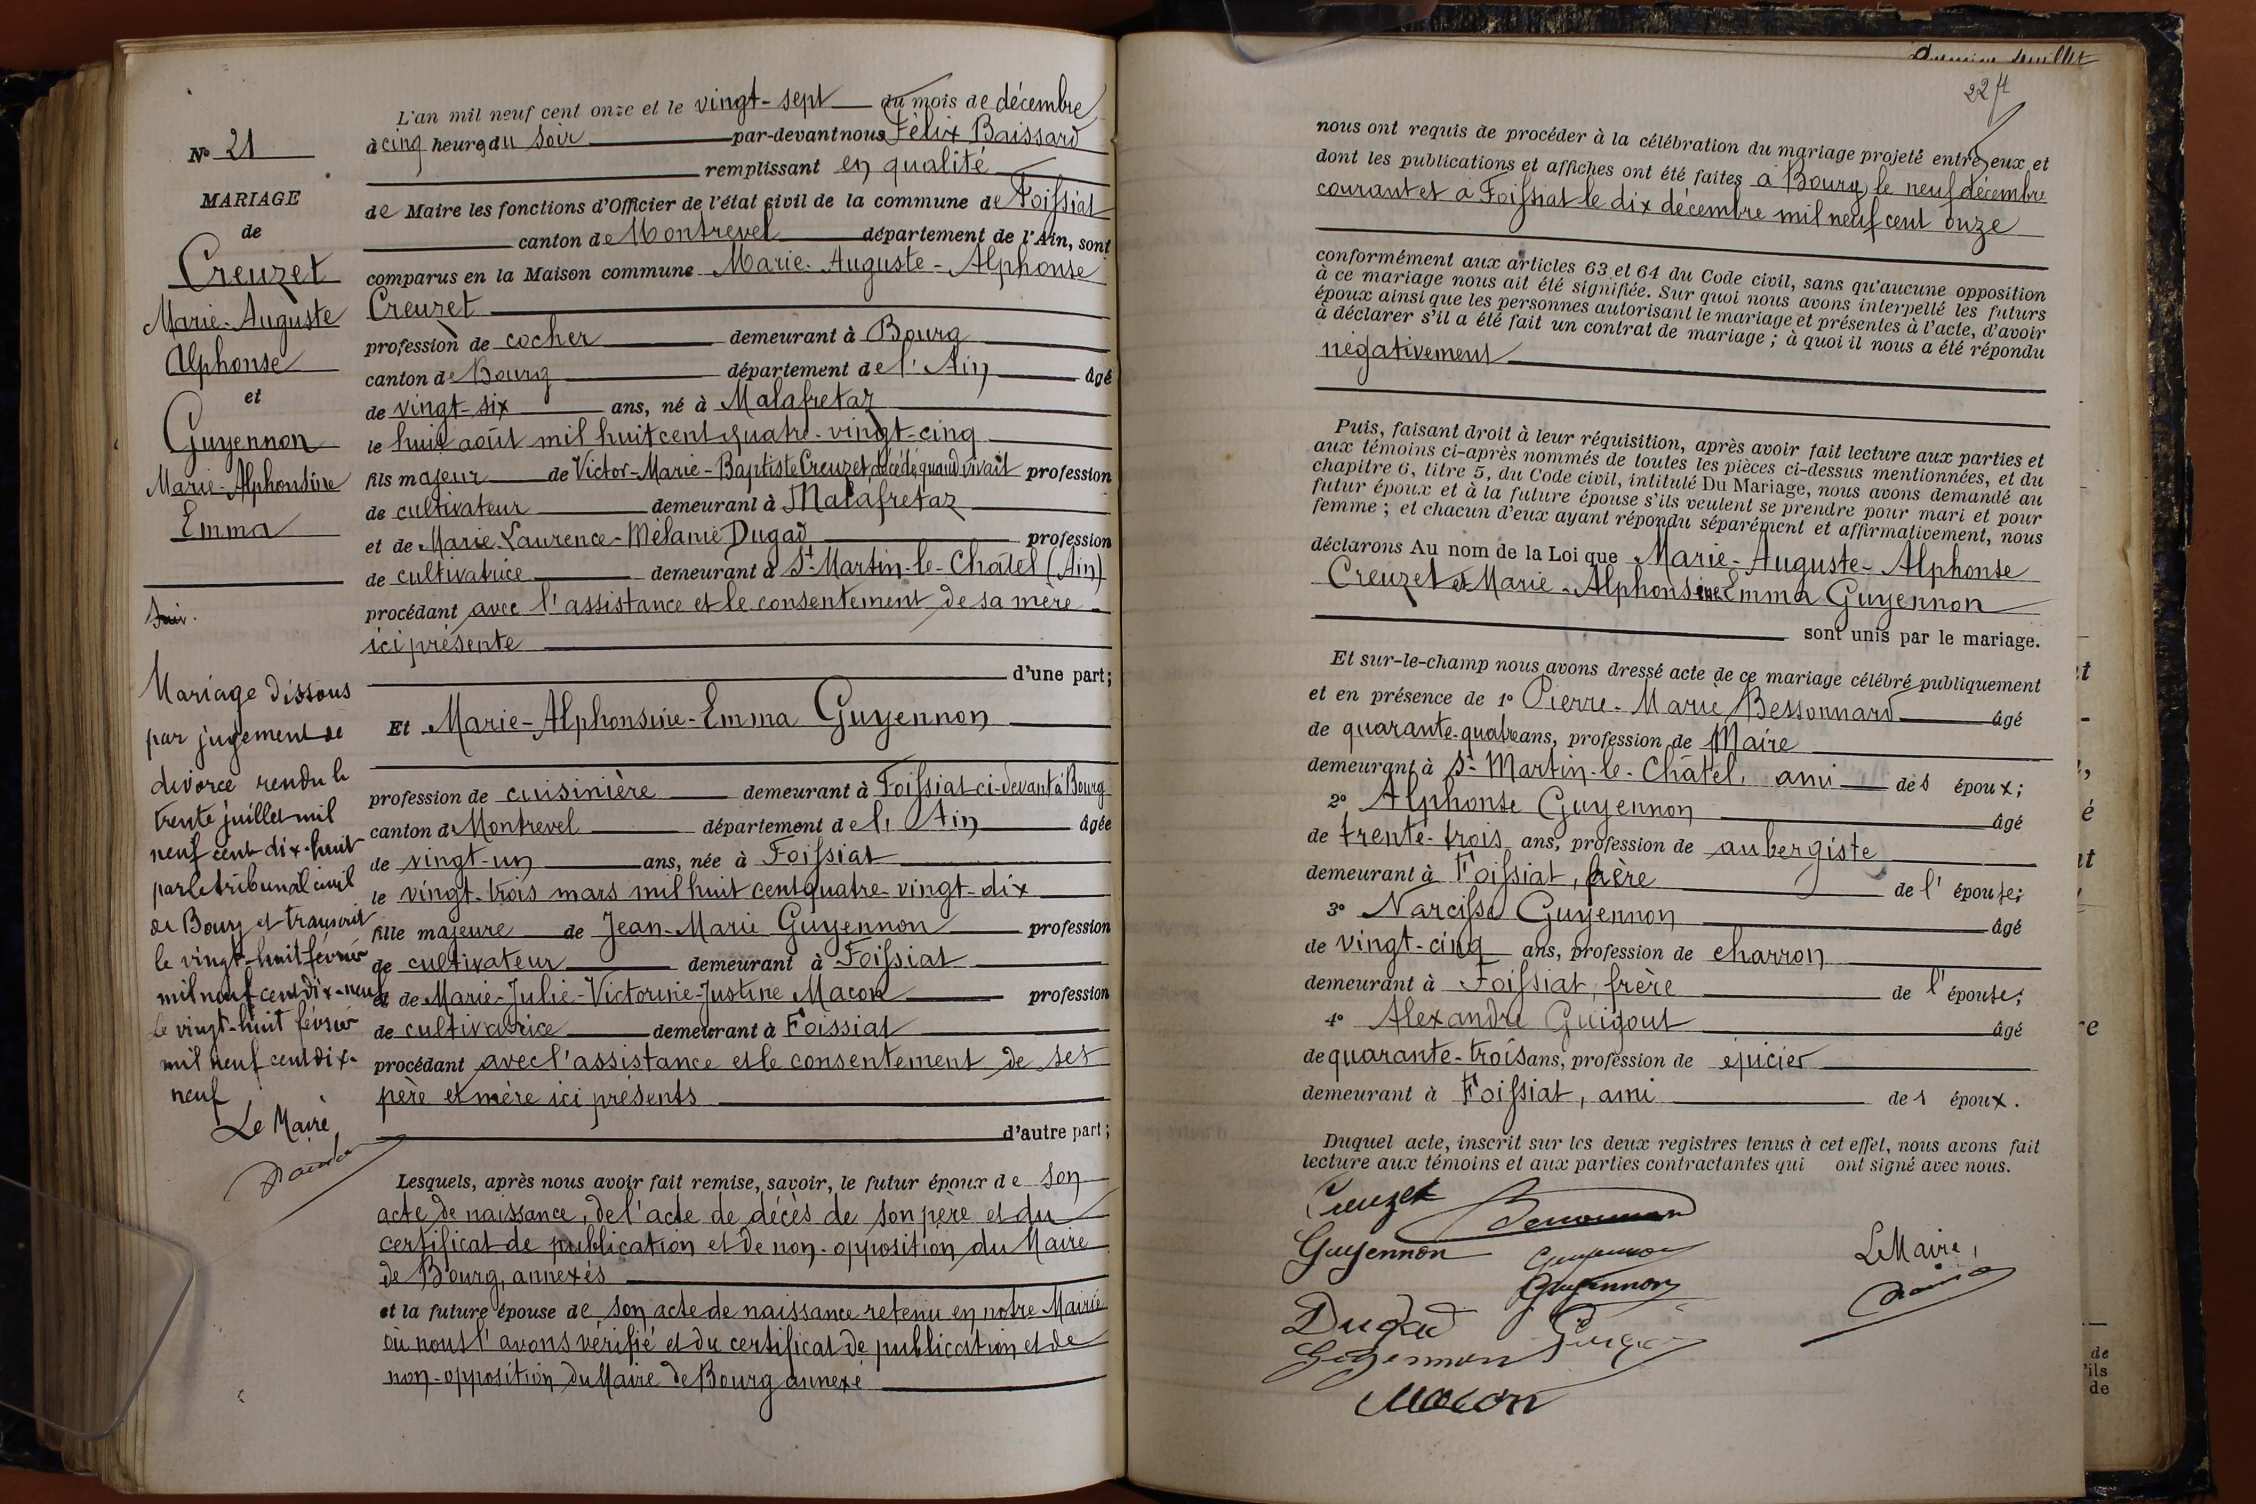 N° 21
MARIAGE
de
Creuzet
Marie-Auguste
Alphonse
et
Guyennon
Marie-Alphonsine
Emma
Mariage dissous
par jugement de
divorce rendu le
trente juillet mil
neuf cent dix-huit
par le tribunal civil
de Bourg et transcrit
le vingt-huit février
mil neuf cent dix-neuf
le vingt-huit février
mil neuf cent dix-
neuf
Le Maire
L'an mil neuf cent onze et le vingt-sept du mois de décembre
à cinq heures du soir par-devant nous Félix Baissard
remplissant en qualité
de Maire les fonctions d'Officier de l'état civil de la commune de Foissiat
canton de Montrevel département de l'Ain, sont
comparus en la Maison commune Marie-Auguste-Alphonse
Creuzet
profession de cocher demeurant à Bourg
canton de Bourg département de l'Ain âgé
de vingt-six ans, né à Malafretaz
le huit août mil huit cent quatre-vingt-cinq
fils majeur de Victor-Marie-Baptiste Creuzet, décédé, quand vivait profession
de cultivateur demeurant à Malafretaz
et de Marie-Laurence-Mélanie Dugad profession
de cultivatrice demeurant à St-Martin-le-Châtel (Ain)
procédant avec l'assistance et le consentement de sa mère
ici présente
d'une part;
Et Marie-Alphonsine-Emma Guyennon
profession de cuisinière demeurant à Foissiat ci-devant à Bourg
canton de Montrevel département de l'Ain âgée
de vingt-un ans, née à Foissiat
le vingt-trois mars mil huit cent quatre-vingt-dix
fille majeure de Jean-Marie Guyennon profession
de cultivateur demeurant à Foissiat
et de Marie-Julie-Victorine-Justine Macon profession
de cultivatrice demeurant à Foissiat
procédant avec l'assistance et le consentement de ses
père et mère ici présents
d'autre part;
Lesquels, après nous avoir fait remise, savoir, le futur époux de son
acte de naissance, de l'acte de décès de son père et du
certificat de publication et de non-opposition du Maire
de Bourg, annexés
et la future épouse de son acte de naissance retenu en notre Mairie
où nous l'avons vérifié et du certificat de publication et de
non-opposition du Maire de Bourg annexé
22
nous ont requis de procéder à la célébration du mariage projeté entre eux et
dont les publications et affiches ont été faites à Bourg, le neuf décembre
courant et à Foissiat le dix décembre mil neuf cent onze
conformément aux articles 63 et 64 du Code civil, sans qu'aucune opposition
à ce mariage nous ait été signifiée. Sur quoi nous avons interpellé les futurs
époux ainsi que les personnes autorisant le mariage et présentes à l'acte, d'avoir
à déclarer s'il a été fait un contrat de mariage ; à quoi il nous a été répondu
négativement
Puis, faisant droit à leur réquisition, après avoir fait lecture aux parties et
aux témoins ci-après nommés de toutes les pièces ci-dessus mentionnées, et du
chapitre 6, titre 5, du Code civil, intitulé Du Mariage, nous avons demandé au
futur époux et à la future épouse s'ils veulent se prendre pour mari et pour
femme ; et chacun d'eux ayant répondu séparément et affirmativement, nous
déclarons Au nom de la Loi que Marie-Auguste-Alphonse
Creuzet et Marie-Alphonsine Emma Guyennon
sont unis par le mariage.
Et sur-le-champ nous avons dressé acte de ce mariage célébré publiquement
et en présence de 1° Pierre-Marie Bessonnard âgé
de quarante-quatre ans, profession de Maire
demeurant à St-Martin-le-Châtel, ami des époux;
2° Alphonse Guyennon âgé
de trente-trois ans, profession de aubergiste
demeurant à Foissiat, frère de l'épouse;
3° Narcisse Guyennon âgé
de vingt-cinq ans, profession de charron
demeurant à Foissiat, frère de l'épouse;
4° Alexandre Guigout âgé
de quarante-trois ans, profession de épicier
demeurant à Foissiat, ami des époux.
Duquel acte, inscrit sur les deux registres tenus à cet effet, nous avons fait
lecture aux témoins et aux parties contractantes qui ont signé avec nous.
Creuzet
Guyennon Guyennon
Le Maire,
Guyennon
Dugad
Guyennon
Macon